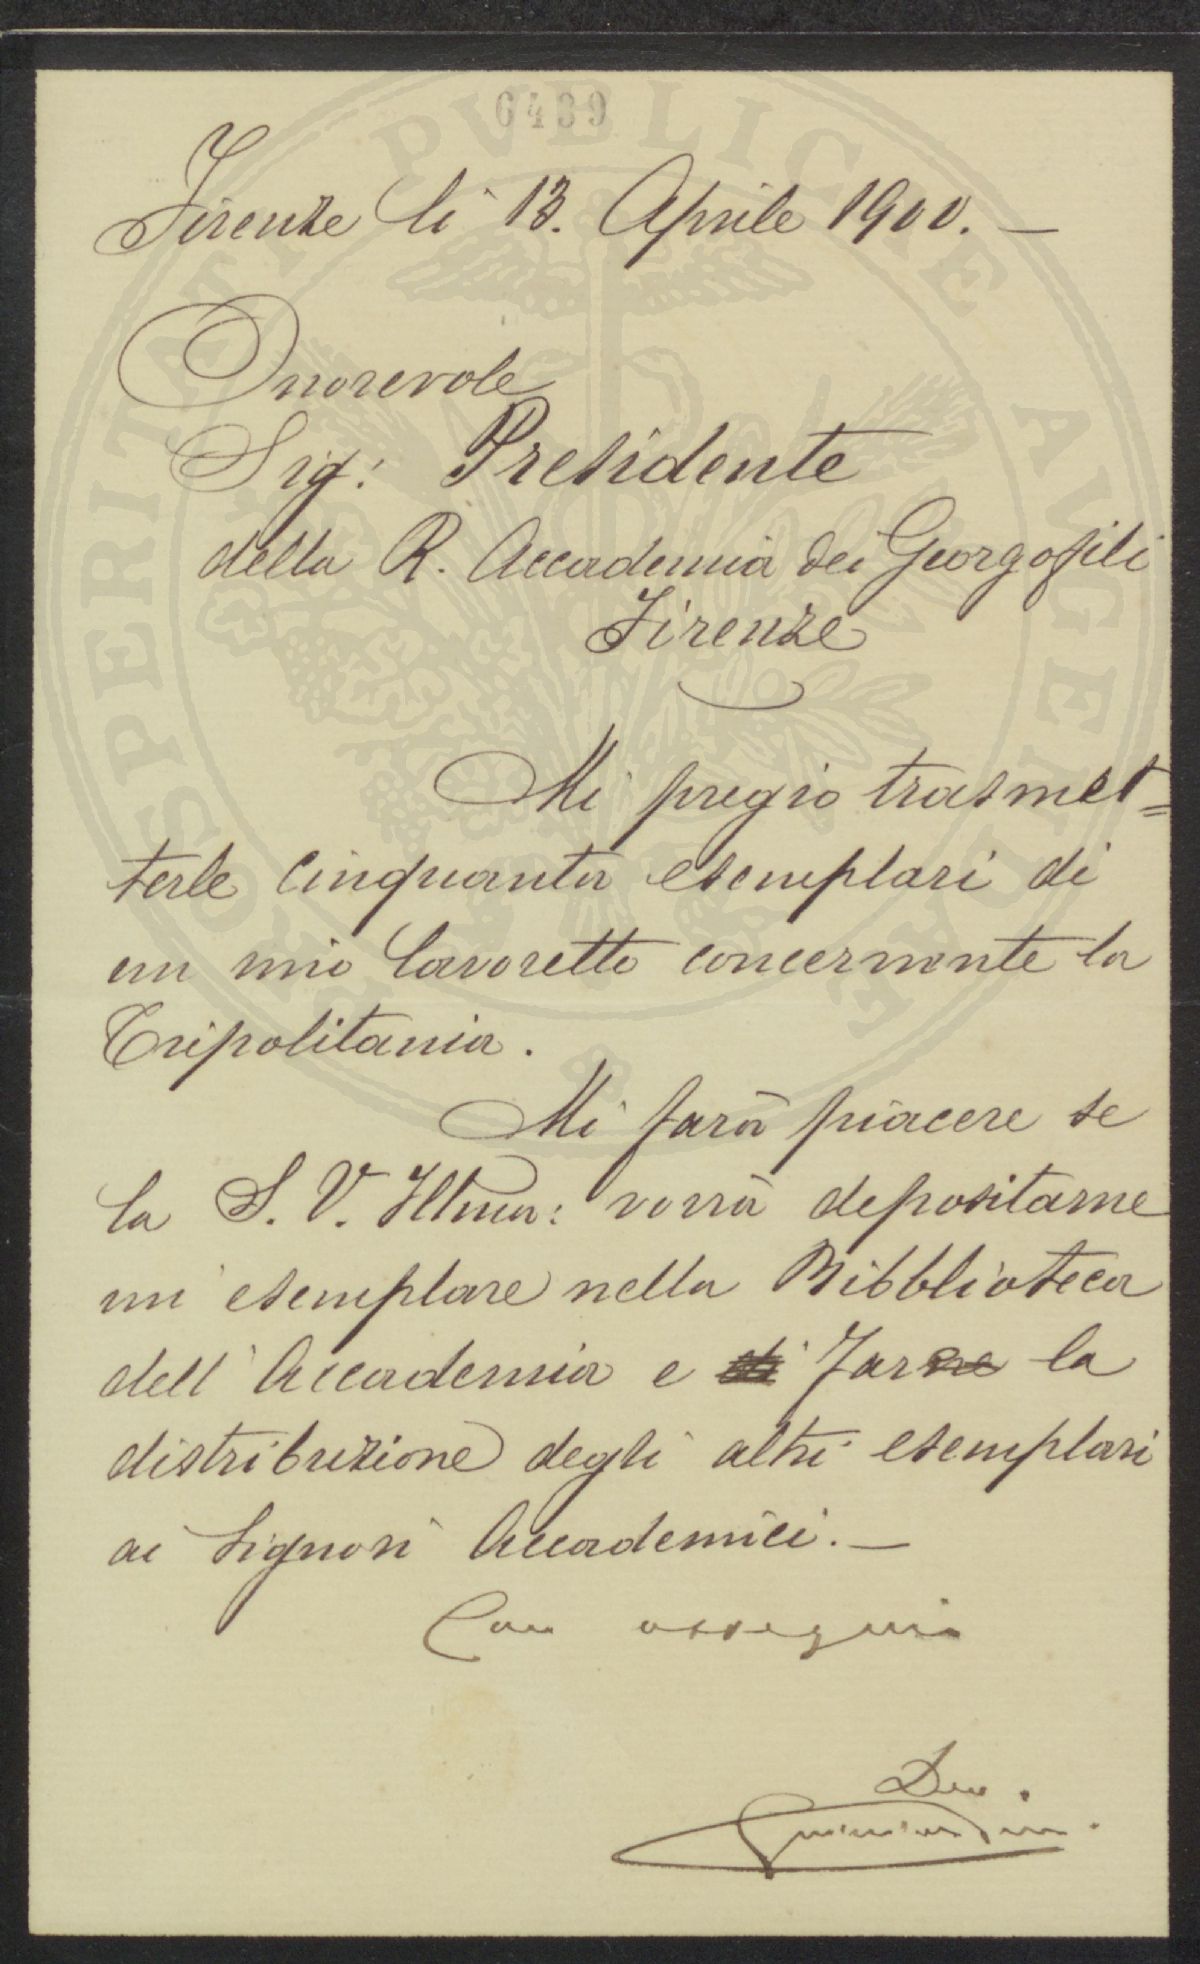 6439
PROSPERITATI PVBLICAE AVGENDAE
Firenze li 13. Aprile 1900. —
Onorevole
Sig: Presidente
della R. Accademia dei Georgofili
Firenze
Mi pregio trasmet=
terle cinquanta esemplari di
un mio lavoretto concernente la
Tripolitania.
Mi farà piacere se
la S. V. Illma: vorrà depositarne
un esemplare nella Bibblioteca
dell'Accademia e far la
distribuzione degli altri esemplari
ai Signori Accademici. —
Con ossequio
Dev.